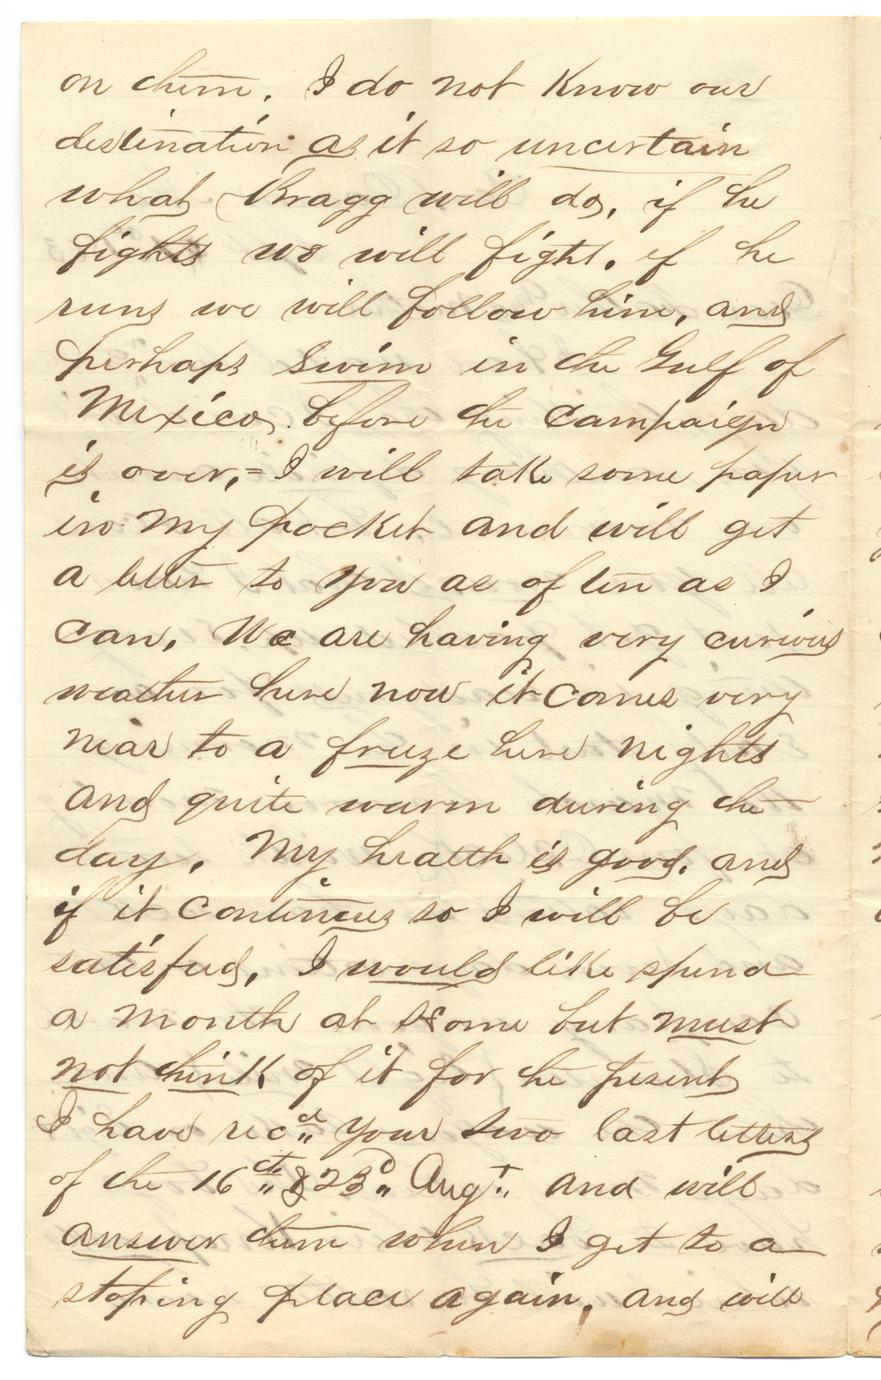 on them. I do not Know our
destination as it so uncertain
what Bragg will do, if he
fights we will fight. if he
runs we will follow him, and
perhaps swim in the Gulf of
Mexico. before the campaign
is over, = I will take some paper
in my pocket and will get
a letter to you as often as I
can, We are having very curious
weather here now it comes very
near to a freeze here nights
and quite warm during the
day. My health is good. and
if it continues so I will be
satisfied, I would like spend
a month at home but must
not think of it for the present
I have recd your two last letters
of the 16th & 23d Augt and will
answer them when I get to a
stoping place again. and will